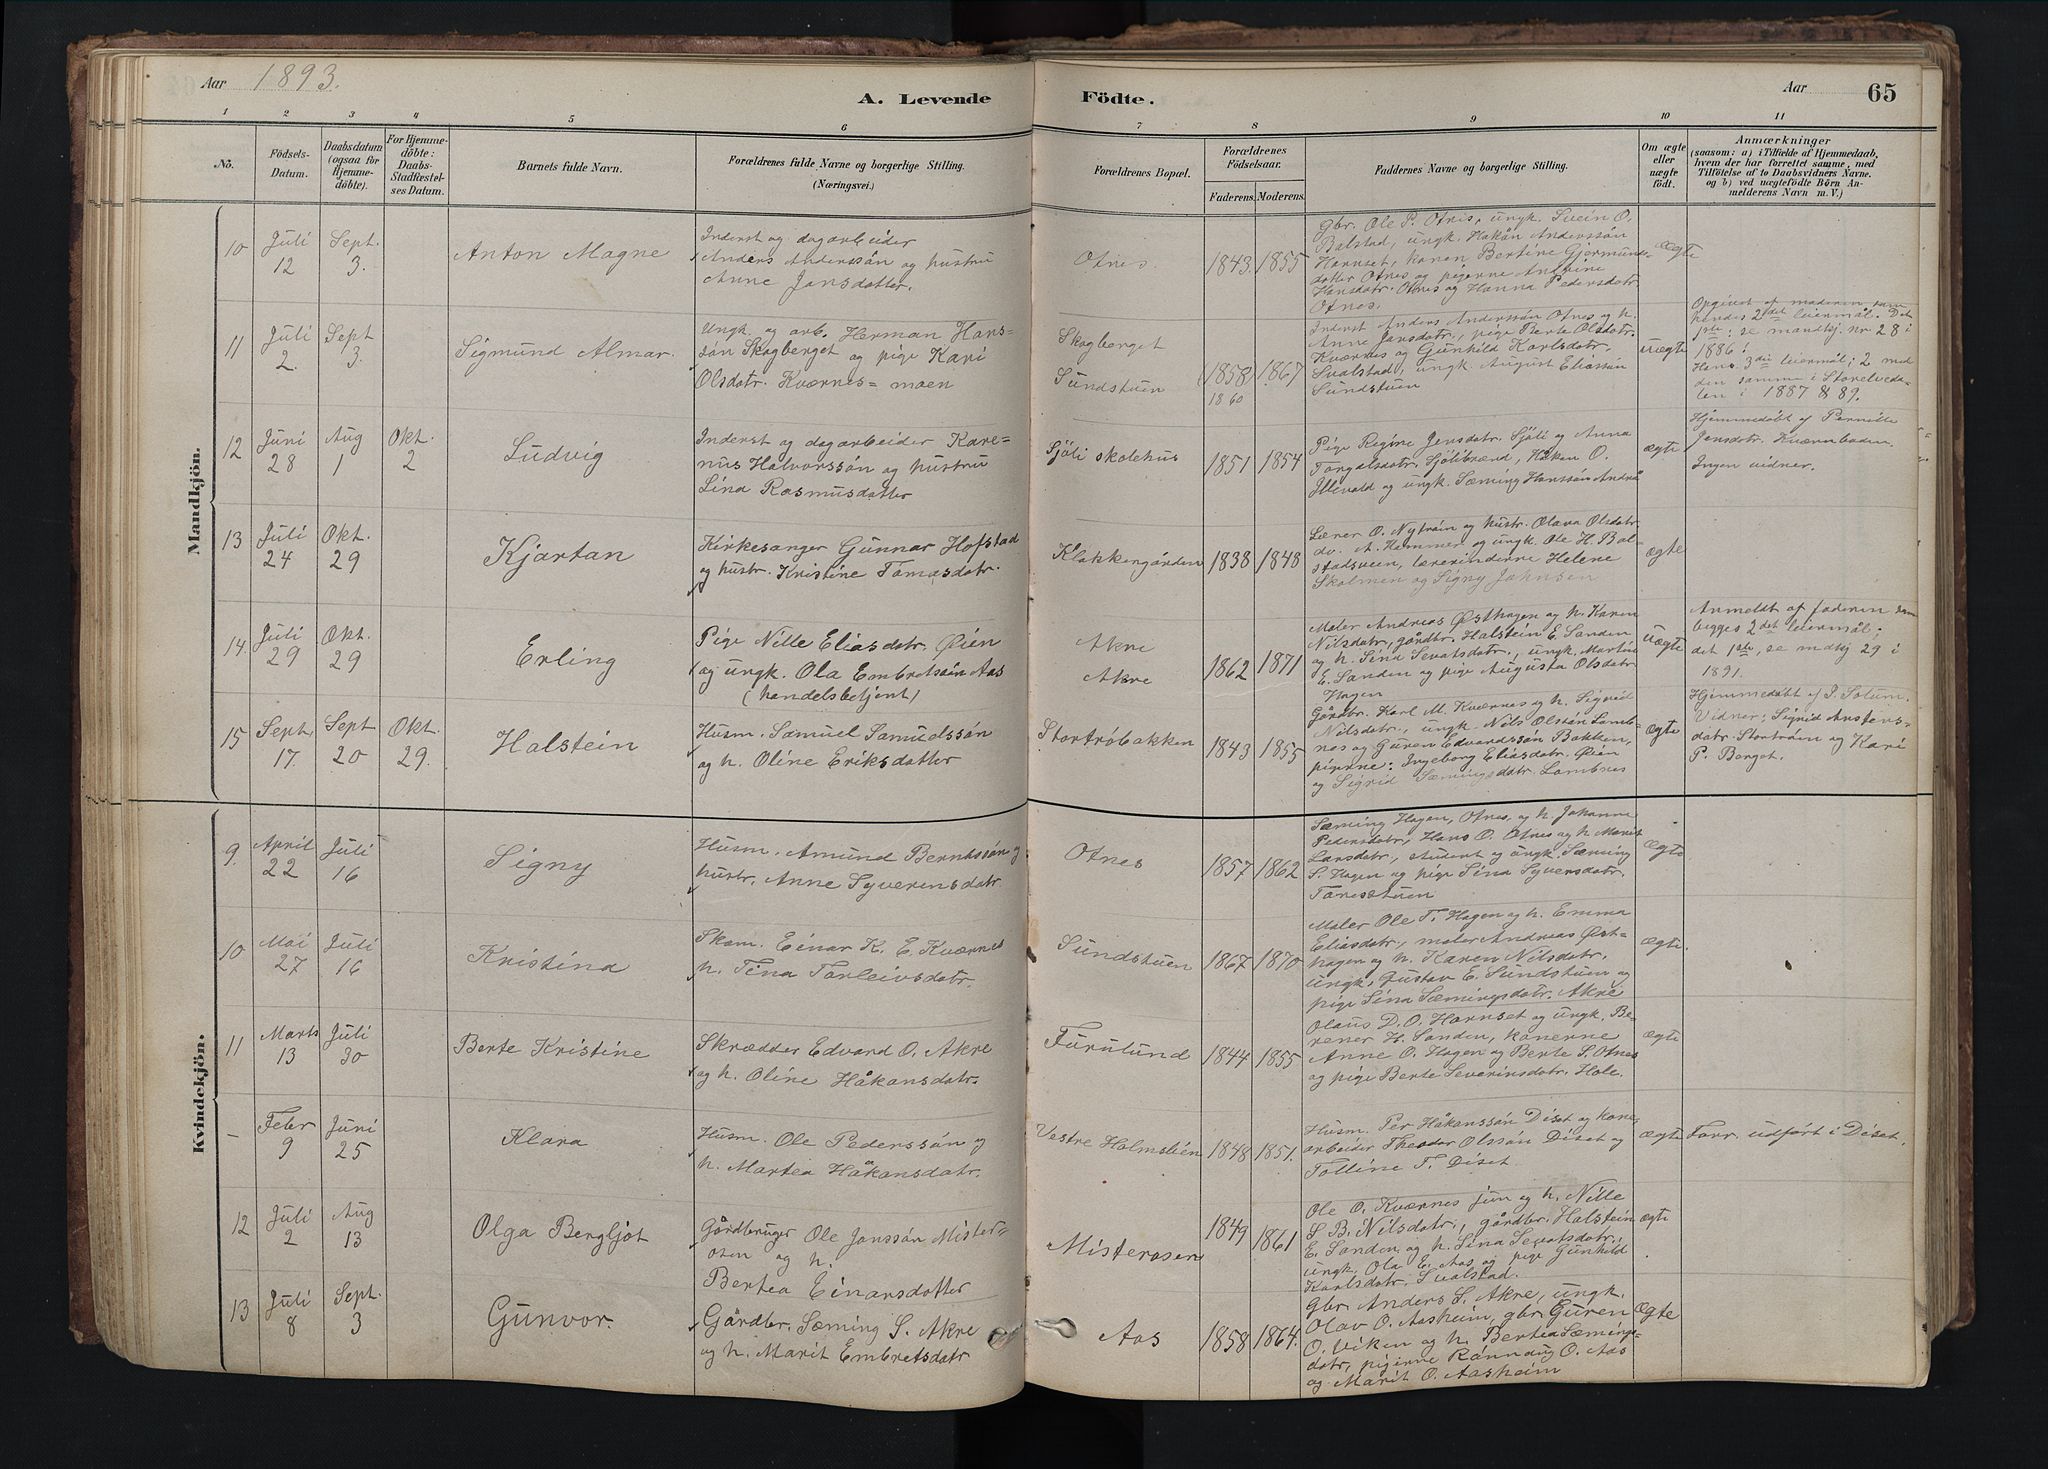 Aar 1893.
A. Levende Födte.
Aar 65
1 2 3 4 5 6 7 8 9 10 11
No.
Födsels-
Datum.
Daabsdatum
(ogsaa for
Hjemme-
döbte).
For Hjemme-
döbte:
Daabs-
Stadfæstel-
ses Datum.
Barnets fulde Navn.
Forældrenes fulde Navne og borgerlige Stilling.
(Næringsvei.)
Forældrenes Bopæl.
Forældrenes
Födselsaar.
Faderens. Moderens.
Faddernes Navne og borgerlige Stilling.
Om ægte
eller
uægte
födt.
Anmærkninger
(saasom: a) i Tilfælde af Hjemmedaab,
hvem der har forrettet samme, med
Tilföielse af to Daabsvidners Navne.
og b) ved uægtefödte Börn An-
melderens Navn m. V.)
Mandkjön.
10
Juli
12
Sept.
3.
Anton Magne
Inderst og dagarbeider
Anders Anderssön og hustru
Anne Jansdatter.
Otnes.
1843. 1855
Gbr. Ole P. Otnes, ungk. Svein O.
Balstad, ungk. Hakån Anderssön
Harnset, konen Bertine Gjermunds-
datter Otnes og pigerne
Hansdatr. Otnes og Hanna Pedersdatr.
Otnes.
ægte
11
Juli
2.
Sept
3.
Sigmund Almar.
Ungk. og arb. Herman Hans-
sön Skogberget og pige Kari
Olsdatr. Kværnes=moen
Skogberget
Sundstuen
1858 1867
1860
Inderst Anders Anderssön Otnes og h.
Anne Jansdatr., pige Berte Olsdatr.
Kværnes og Gunhild Karlsdatr.
Svalstad, ungk. August Eliassön
Sundstuen
uægte
Opgivet af moderen, som
hendes 2det leiermål. Det
1ste: se mandkj. nr. 28 i
1886!
Hans 3die leiermål; 2 med
den samme i Storelveda-
len i 1887 & 89.
12
Juni
28
Aug
1
Okt.
2
Ludvig
Inderst og dagarbeider Kare-
nus Halvorssön og hustru
Lina Rasmusdatter
Sjöli skolehus
1851 1854
Pige Regine Jensdatr. Sjöli og Anna
Torgalsdatr. Sjölibrænd, Håken O.
Illevald og ungk. Sæming Hanssön Andrå
ægte
Hjemmedöbt af Pernille
Jensdatr. Kværnboden.
Ingen vidner.
13
Juli
24
Okt.
29
Kjartan
Kirkesanger Gunnar Hofstad
og hustr. Kristine Tomasdatr.
Klokkergården
1838 1848
Lærer O. Nytröin og hustr. Olava Olsdatr.
do. A. Hammer og ungk. Ole H. Bal-
stadsveen, lærerinderne Helene
Skolmen og Signy Jahnsen
ægte
14.
Juli
29
Okt.
29
Erling
Pige Nille Eliasdatr. Öien
og ungk. Ola Embretssön Aas
(handelsbetjent)
Akre
Akre
1862 1871
Maler Andreas Østhagen og h. Karen
Nilsdatr., gårdbr. Halstein E. Sanden
og h. Sina Sevatsdatr., ungk. Martin
E. Sanden og pige Augusta Olsdatr.
Hagen
uægte
Anmeldt af faderen som
begges 2det leiermål;
det 1ste, se mdkj 29 i
1891.
15
Sept.
17.
Sept
20
Okt.
29.
Halstein
Husm. Samuel Samuelssön
og h. Oline Eriksdatter
Stortröbakken
1843 1855
Gårdbr. Karl M. Kværnes og h. Sigrid
Nilsdatr., ungk. Nils Olssön Lomb-
nes og Guren Edvardssön Bakken,
pigerne: Ingeborg Eliasdatr. Öien
og Sigrid Sæmingsdatr. Lombnes
ægte
Hjemmedöbt af P. Solum.
Vidner: Sigrid Anstens-
datr. Stortröin og Kari
P. Berget.
Kvindekjön.
9.
April
22
Juli
16
Signy
Husm. Amund Berntssön og
hustr. Anne Syverensdatr.
Otnes
1857 1862
Sæming Hagen, Otnes, og h. Johanne
Pedersdatr., Hans O. Otnes og h. Marit
Larsdatr., student og ungk. Sæming
S. Hagen og pige Sina Syversdatr.
ægte
10
Mai
27
Juli
16
Kristina
Skom. Einar K. E. Kværnes
h. Tina Torleivsdatr.
Sundstuen
1867 1870
Maler Ole T. Hagen og h. Emma
Eliasdatr., maler Andreas Øst-
hagen og h. Karen Nilsdatr.
ungk. Gustav E. Sundstuen og
pige Sina Sæmingsdatr. Akre
ægte.
11
Marts
13
Juli
30
Berte Kristine
Skrædder Edvard O. Akre
og h. Oline Håkansdatr.
Furulund
1844 1855
Olaus D. O. Harnset og ungk. Be-
rener H. Sanden, konerne
Anne O. Hagen og Berte S. Otnes
og pige Berte Severinsdatr. Hole.
ægte
–
Febr
9
Juni
25
Klara
Husm. Ole Pederssön og
h. Martea Håkansdatr.
Vestre Holmsteen
1848 1851.
Husm. Per Håkanssön Diset og kone,
arbeider Theodor Olssön Diset og
Tolline T. Diset
ægte
Forr. udfört i Diset.
12
Juli
2
Aug
13
Olga Bergljot
Gårdbruger Ole Janssön Mister-
osen og h.
Bertea Einarsdatter
Misterosen
1849 1861
Ole O. Kværnes jun og h. Nille
S. B. Nilsdatr., gårdbr. Halstein
E. Sanden og h. Sina Sevatsdatr.,
ungk. Ola E. Aas og pige Gunhild
Karlsdatr. Svalstad.
ægte
13
Juli
8
Sept.
3
Gunvor.
Gårdbr. Sæming S. Akre
og h. Marit Embretsdatr
Aas
1858 1864.
Gbr. Anders S. Akre, ungk.
Olav O. Aasheim, gbr. Guren
O. Viken og h. Bertea Sæmings-
datr., pigerne Rönnaug O. Aas
og Marit O. Aasheim
ægte